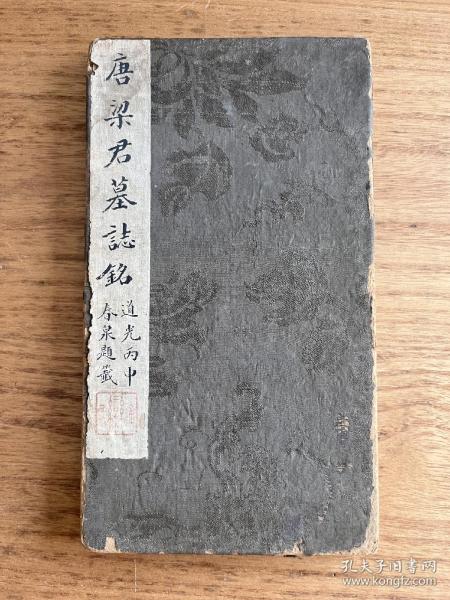 唐梁君墓誌銘
道光丙申
春泉題籤
孔夫子旧书网
www.kongfz.com